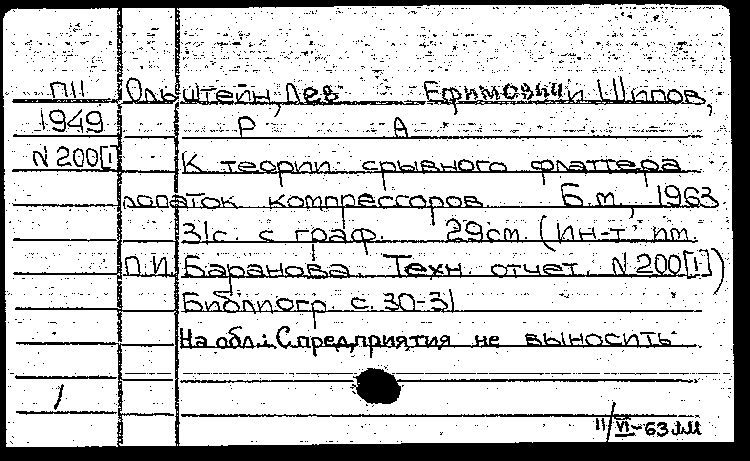 ПII Ольштейн, Лев Ефимович и Шипов,
1949 Р А
N 200[I] К теории срывного флаттера
лопаток компрессоров Б.м., 1963
31с. с граф. 29см. (Ин-т им.
П.И. Баранова. Техн. отчет. N 200[I])
Библиогр. с. 30-31
На обл.: С предприятия не выносить
1
11/VI-63